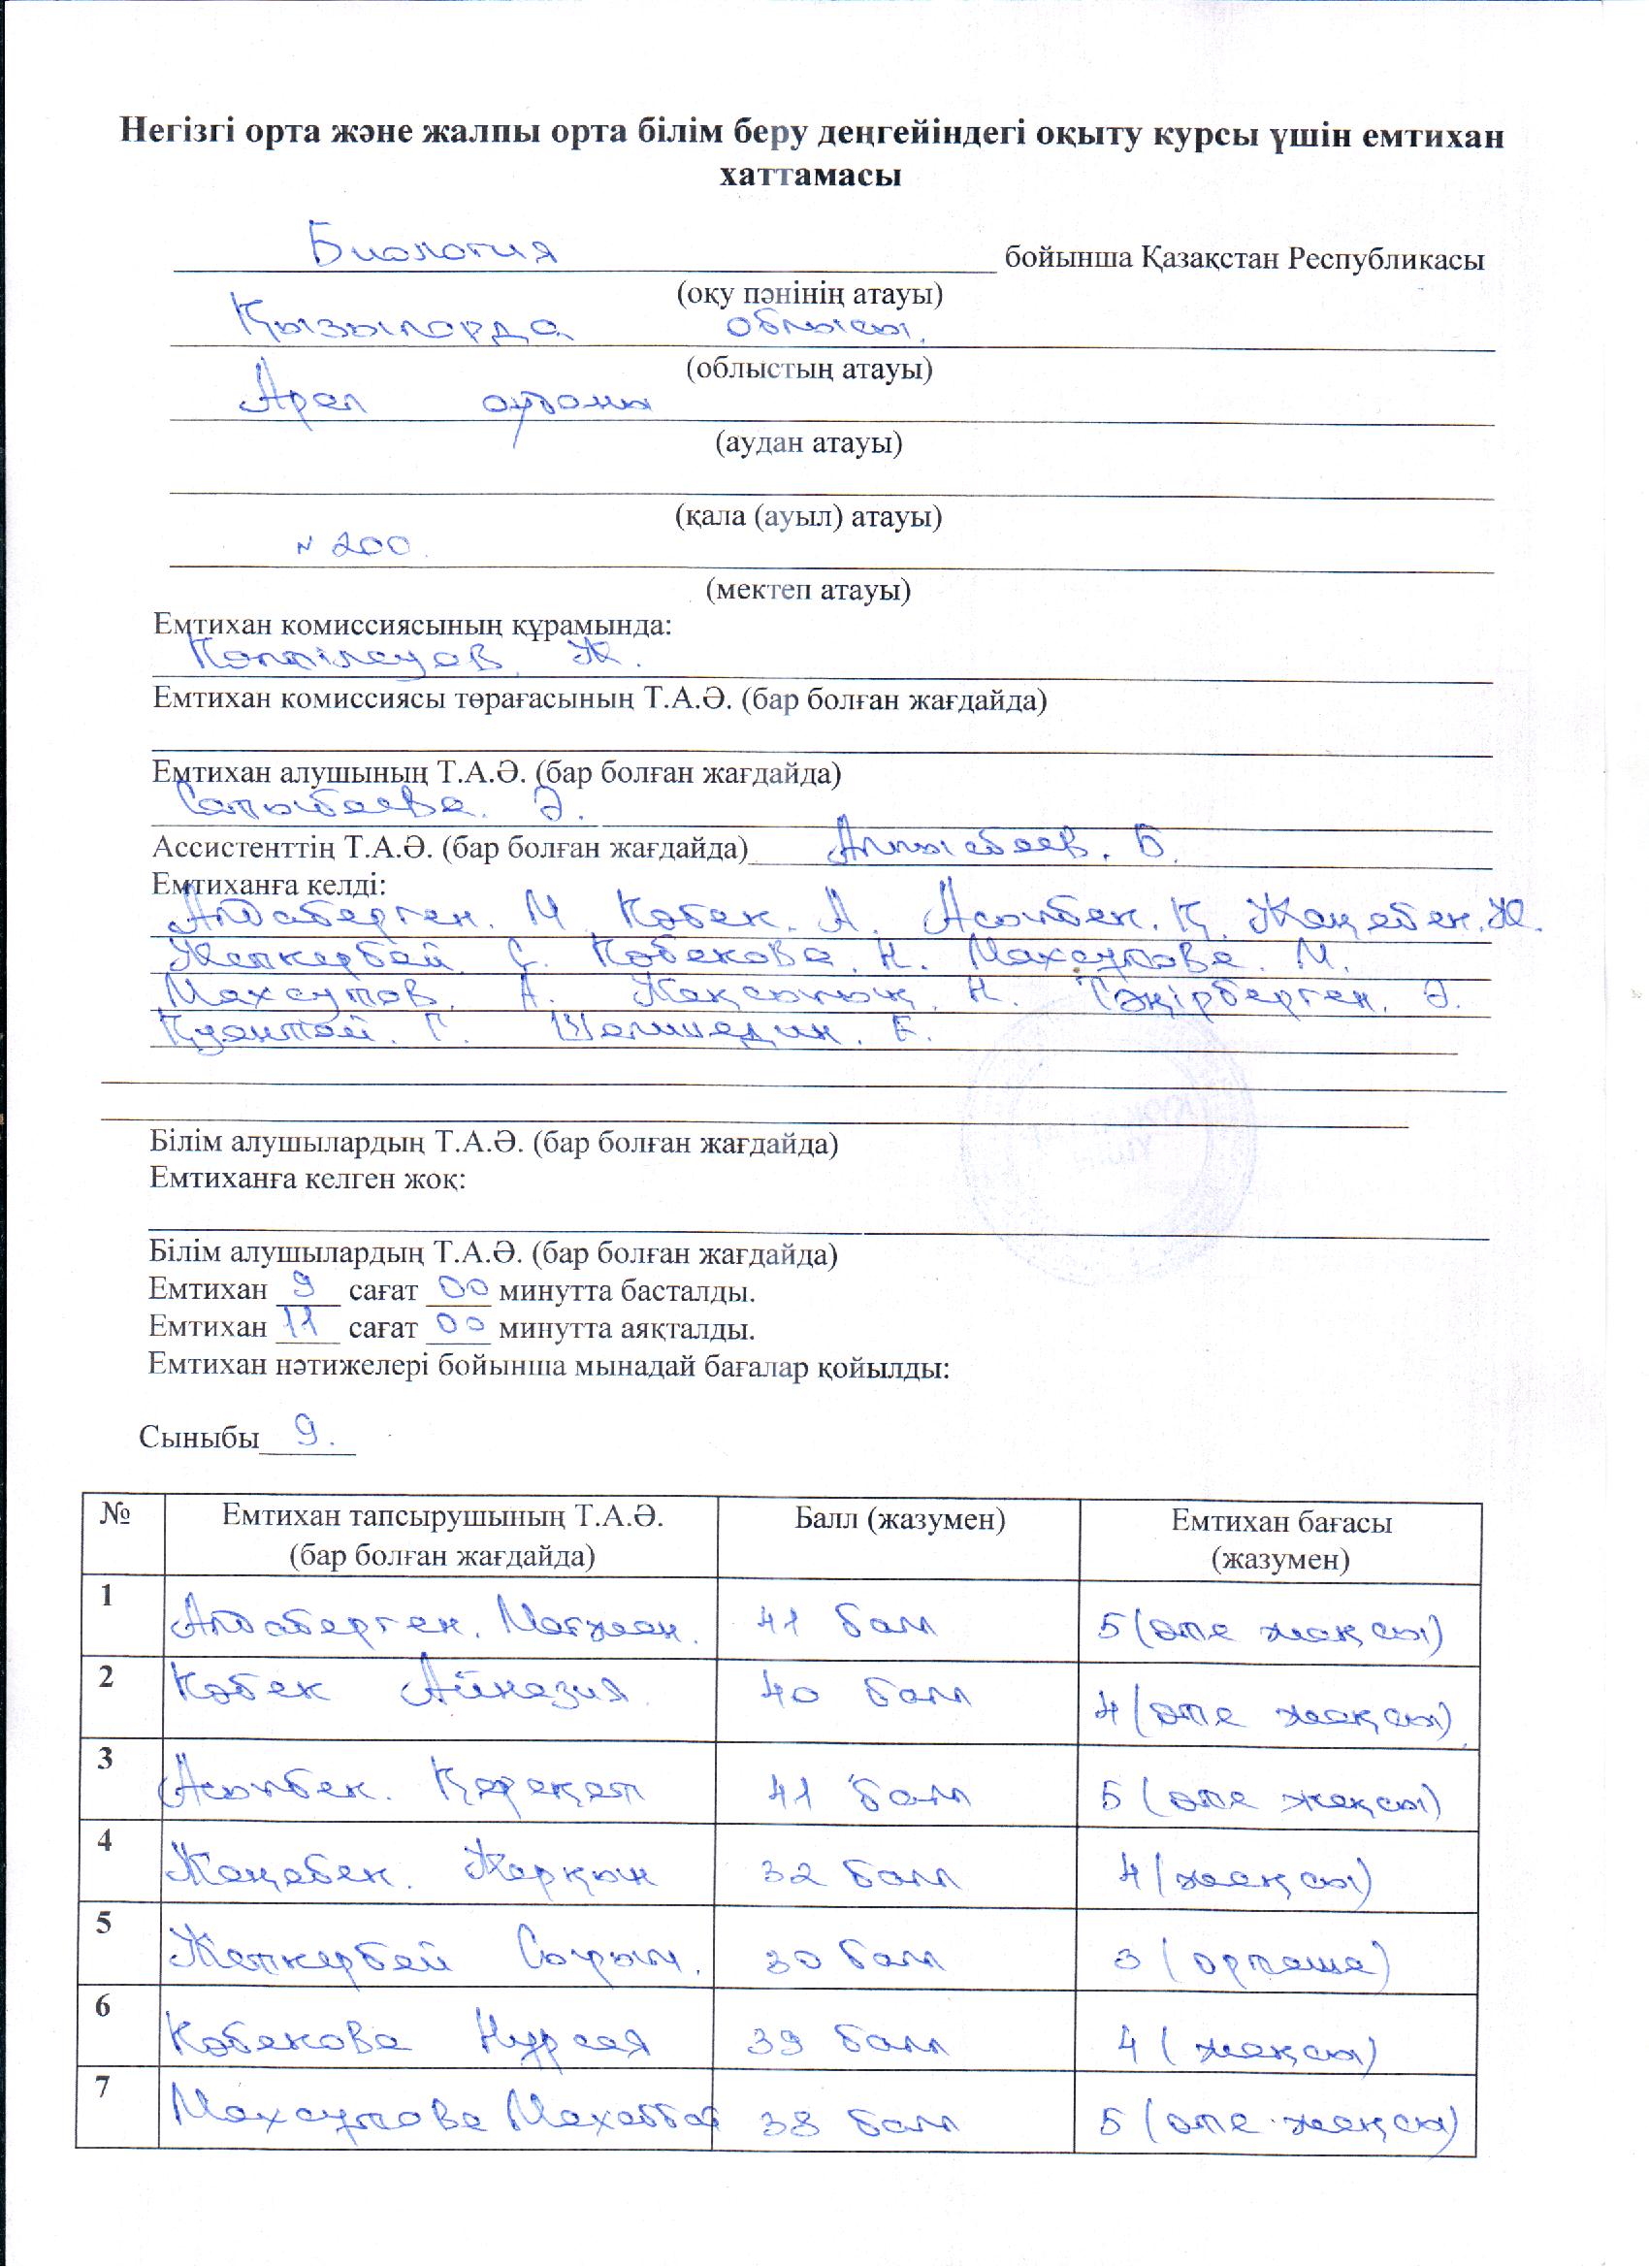 Негізгі орта және жалпы орта білім беру деңгейіндегі оқыту курсы үшін емтихан
хаттамасы
Биология бойынша Қазақстан Республикасы
(оқу пәнінің атауы)
Қызылорда облысы.
(облыстың атауы)
Арал ауданы
(аудан атауы)
(қала (ауыл) атауы)
№ 200.
(мектеп атауы)
Емтихан комиссиясының құрамында:
Көптілеуов. Ж.
Емтихан комиссиясы төрағасының Т.А.Ә. (бар болған жағдайда)
Емтихан алушының Т.А.Ә. (бар болған жағдайда)
Сатыбаева. Ә.
Ассистенттің Т.А.Ә. (бар болған жағдайда) Алпысбаев. Б.
Емтиханға келді:
Алдаберген. М. Көбек. А. Асылбек. Қ. Жаңабек. Ж.
Жепкербай. С. Көбекова. Н. Махсутова. М.
Махсутов. А. Жақсылық. Н. Тәңірберген. Ә.
Қуантай. Г. Шалшедин. Е.
Білім алушылардың Т.А.Ә. (бар болған жағдайда)
Емтиханға келген жоқ:
Білім алушылардың Т.А.Ә. (бар болған жағдайда)
Емтихан 9 сағат 00 минутта басталды.
Емтихан 11 сағат 00 минутта аяқталды.
Емтихан нәтижелері бойынша мынадай бағалар қойылды:
Сыныбы 9.
№ Емтихан тапсырушының Т.А.Ә. (бар болған жағдайда) Балл (жазумен) Емтихан бағасы (жазумен)
1 Алдаберген. Мағжан. 41 балл 5 (өте жақсы)
2 Көбек Айназия. 40 балл 4 (өте жақсы)
3 Асылбек. Қарақат 41 балл 5 (өте жақсы)
4 Жаңабек. Жарқын 32 балл 4 (жақсы)
5 Жепкербай Сырым. 30 балл 3 (орташа)
6 Көбекова Нұрсая 39 балл 4 (жақсы)
7 Махсутова Махаббат 38 балл 5 (өте жақсы)